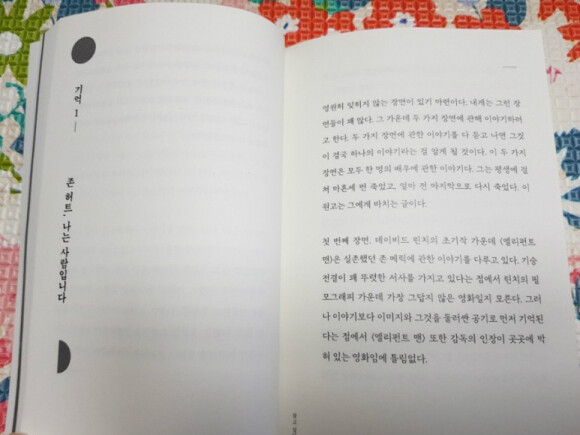 기억 1
존 허트, 나는 사람입니다
영원히 잊히지 않는 장면이 있기 마련이다. 내게는 그런 장
면들이 꽤 많다. 그 가운데 두 가지 장면에 관해 이야기하려
고 한다. 두 가지 장면에 관한 이야기를 다 듣고 나면 그것
이 결국 하나의 이야기라는 걸 알게 될 것이다. 이 두 가지
장면은 모두 한 명의 배우에 관한 이야기다. 그는 평생에 걸
쳐 마흔세 번 죽었고, 얼마 전 마지막으로 다시 죽었다. 이
원고는 그에게 바치는 글이다.
첫 번째 장면. 데이비드 린치의 초기작 가운데 〈엘리펀트
맨〉은 실존했던 존 메릭에 관한 이야기를 다루고 있다. 기승
전결이 꽤 뚜렷한 서사를 가지고 있다는 점에서 린치의 필
모그래피 가운데 가장 그답지 않은 영화일지 모른다. 그러
나 이야기보다 이미지와 그것을 둘러싼 공기로 먼저 기억된
다는 점에서 〈엘리펀트 맨〉 또한 감독의 인장이 곳곳에 박
혀 있는 영화임에 틀림없다.